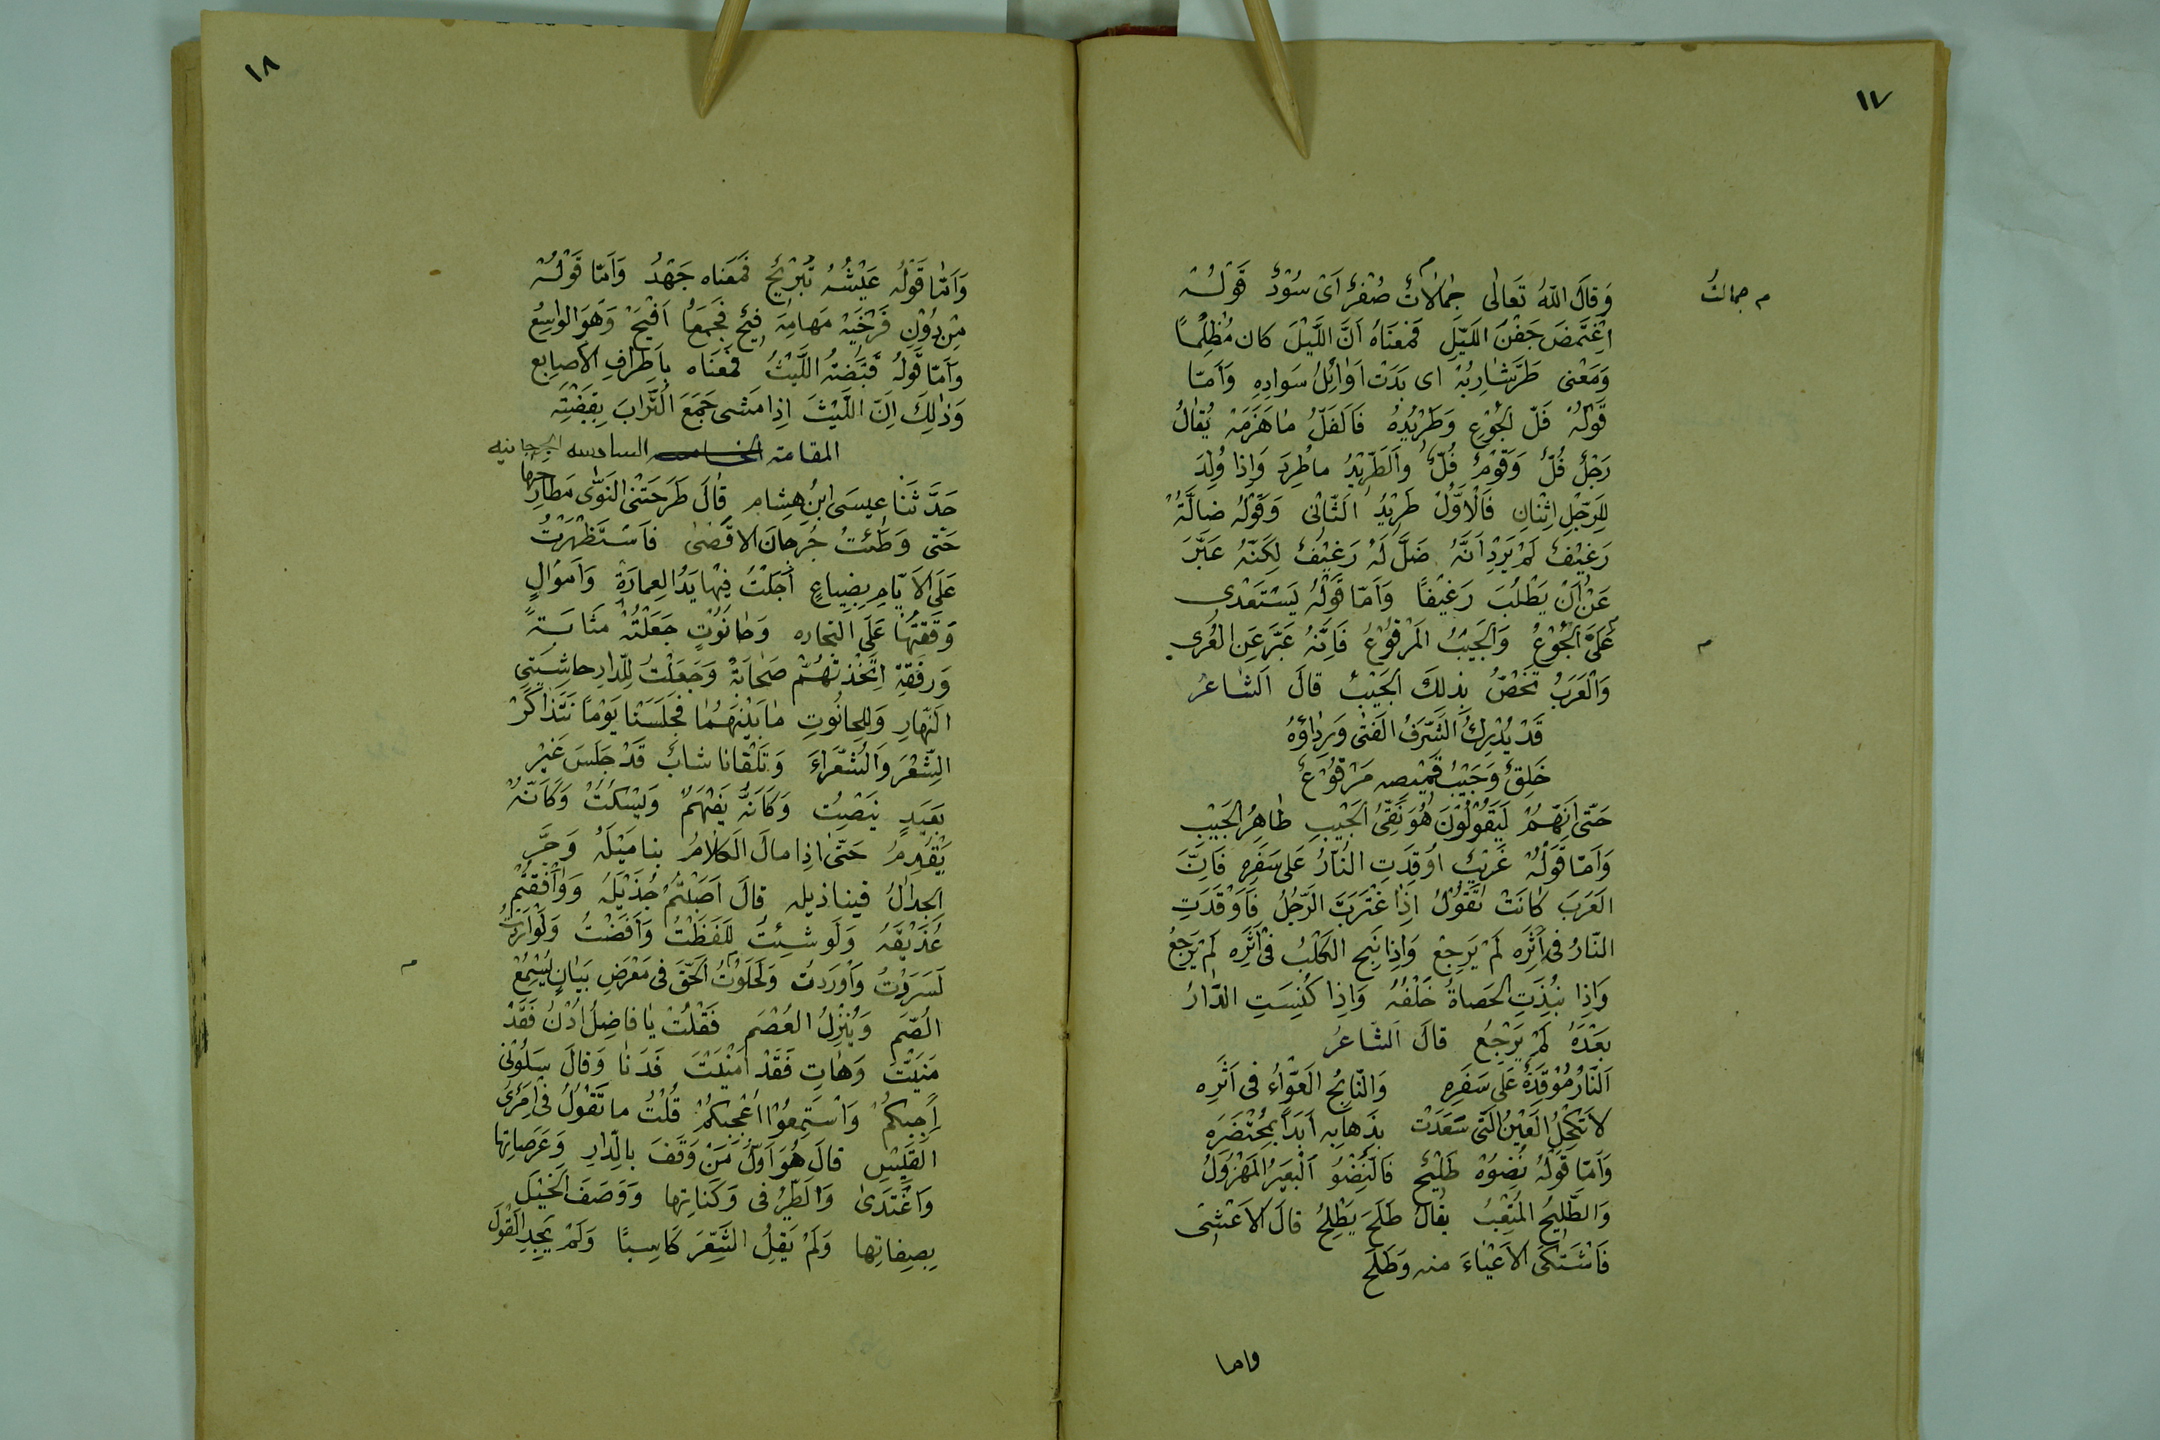 ١٧
م جمالتُ
وَقَالَ اللهُ تَعَالٰى جِمَالَاتٌ صُفْرٌ اَىْ سُوْدٌ قَوْلُهٗ
اِغْتَمَضَ جَفْنَ اللَّيْلِ فَمَعْنَاهُ اَنَّ اللَّيْلَ كان مُظْلِمًا
وَمَعْنٰى طَرَّشَارِبُهٗ اى بَدَتْ اَوَائِلُ سَوَادِهِ وَاَمَّا
قَوْلُهٗ فَلّ الجُوْعِ وَطَرِيْدُهُ فَالفَلُّ مَا هَزَمَهٗ يُقَالُ
رَجُلٌ فُلٌّ وَقَوْمٌ فُلٌّ وَالطَّرِيْدُ ماطُرِدَ وَاِذَا وُلِدَ
لِلرَّجُلِ اِثْنَانِ فَالْاَوَّلُ طَرِيْدُ الثَّانِى وَقَوْلُهٗ ضَالَّةُ
رَغِيْفٍ لَمْ يَرِدْ اَنَّهٗ ضَلَّ لَهٗ رَغِيْفٌ لٰكِنَّهٗ عَبَّرَ
عَنْ اَنْ يَطْلُبَ رَغِيْفًا وَاَمَّا قَوْلُهٗ يَسْتَعْدِى
عَلَىَّ الْجُوْعُ وَالجَيْبُ المَرْقُوْعُ فَاِنَّهٗ عَبَّرَ عَنِ العُرىِ
م
وَالْعَرَبُ تَخُصُّ بِذٰلِكَ الجَيْبَ قالَ الشَّاعرُ
قَدْ يُدْرِكُ الشَّرَفَ الفَتٰى وَرِدَاؤُهُ
خَلِقٌ وَجَيْبُ قَمِيْصِهِ مَرْقُوْعٌ
حَتّٰى اَنَّهُمْ لَيَقُوْلُوْنَ هُوَ نَقِىُّ الجَيْبِ طَاهِرُ الجَيْبِ
وَاَمَّا قَوْلُهٗ غَرِيْبٌ اُوْقِدَتِ النَّارُ عَلٰى سَفَرِهِ فَاِنَّ
العَرَبَ كَانَتْ تَقُوْلُ اِذَا غْتَرَبَ الرَّجُلُ فَاَوْقَدَتِ
النَّارُ فِى اَثَرِهِ لَمْ يَرجِعْ وَاِذَا نَبَحَ الكَلْبُ فِى اَثَرِهِ لَمْ يَرْجِعْ
وَاِذَا نُبِذَتِ الحَصَاةُ خَلْفَهٗ وَاِذَا كُنِسَتِ الدَّارُ
بَعْدَهُ لَمْ يَرْجِعْ قَالَ الشَّاعرُ
اَلنَّارُ مُوْقَدَةٌ عَلٰى سَفَرِهِ وَالنَّابِحُ العَوَّاءُ فى اَثَرِهِ
لَا تَكْحُلِ العَيْنُ الَّتِى سَعَدَتْ بِذَهَابِهِ اَبَدًا بِمُحْتَضَرِهِ
وَاَمَّا قَوْلُهٗ نُضِوُهٗ طَلِيْحٌ فَالنِّضْوُ اَلْبَعِيْرُ المَهْزُوْلُ
وَالطَّلِيْحُ المُتْعَبُ يقَالُ طَلَحَ يَطْلِحُ قالَ الاَعْشٰى
فَاشْتَكَى الاَعْيَاءَ منه وَطَلَحْ
واما
١٨
وَاَمَّا قَوْلُهٗ عَيْشُهٗ تَبْرِيْحٌ فَمَعَنَاه جَهْدُ وَاَمَّا قَوْلُهٗ
مِنْ دُوْنِ فَرْخَيْهِ مَهَامِهُ فِيْحٌ فَجَمْعُ اَفْيَحَ وَهُوَ الواسِعُ
وَاَمَّا قَوْلُهٗ قَبَضَتْهُ اللَّيْثُ فَمَعْنَاه بِاَطرَافِ الاَصَابِع
وَذٰلِكَ اِنَّ اللَّيْثَ اِذَا مَشٰى جَمَعَ التُّرَابَ بِقَبْضَتِهِ
المقامة الخامسه السادسه الجرجانيه
حَدَّثَنَا عيسَى ابنُ هِشَامٍ قَالَ طَرَحَتْنِى النَّوٰى مَطَارِحَهَا
حَتّٰى وَطِئْتُ جُرجَانَ الاقصٰى فَاسْتَظْهَرْتُ
عَلَى الاَيَّامِ بِضِيَاعٍ اَجَلْتُ فِيْهَا يَدَ العِمَارَةِ وَاَمْوَالٍ
وَقَفْتُهَا عَلَى التجاره وَحَانُوْتٍ جَعَلْتُهٗ مَثَابَةً
وَرِفْقَةٍ اِتَّخَذْتُهُمْ صَحَابَةً وَجَعَلْتُ لِلدَّارِ حَاشِيَتِىِ
النَّهَارِ وَلِلحَانُوْتِ مَا بَيْنَهُمَا فَجَلَسْنَا يَوْمًا نَتَذَاكَرُ
الشِّعْرَ وَالشُّعَرَاءَ وَتِلْقَانَا شَابٌّ قَدْ جَلَسَ غَيْرَ
بَعِيْدٍ يَنْصِتُ وَكَاَنَّهٗ يَفْهَمُ وَيَسْكُتُ وَكَاَنَّهٗ
يَقْدِمُ حَتّٰى اِذَا مالَ الكَلَامُ بِنَا مَيْلَهٗ وَجَرَّ
الجِدَالُ فينا ذيله قالَ اَصَبْتُمْ جُذَيْلَهٗ وَوَافَقْتُمْ
عُذَيْقَهٗ وَلَو شِئْتُ لَلَفَظْتُ وَاَفَضْتُ وَلَوْ اَرَدْتُ
لَسَرَدْتُ وَاَوْرَدْتُ وَلَجَلَوْتُ الحَقَّ فِى مَعْرَضِ بَيَانٍ يُسْمِعُ
م
الصُّمَّ وَيُنْزِلُ العُصْمَ فَقُلْتُ يَا فَاضِلُ اُدْنُ فَقَدْ
مَنَيْتَ وَهَاتِ فَقَدْ اَثْنَيْتَ فَدَنَا وَقَالَ سَلُوْنِى
اُجِبْكُمْ وَاسْتَمِعُوْا اُعْجِبْكُمْ قُلْتُ ما تَقُوْلُ فِى امْرَئِ
القَيْسِ قالَ هُوَ اَوَّلُ مَنْ وَقَفَ بالدَّارِ وَعَرَصَاتِهَا
وَاغْتَدٰى وَالطَّيْرُ فى وَكَنَاتِهَا وَوَصَفَ الخَيْلَ
بِصِفَاتِهَا وَلَمْ يَقُلِ الشِّعْرَ كَاسِبًا وَلَمْ يُجِدِ القَوْلَ